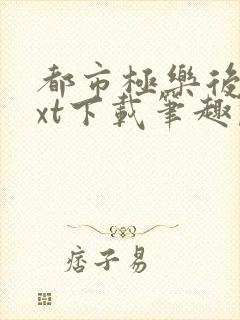 都市極樂後
xt下載筆趣
痞子易